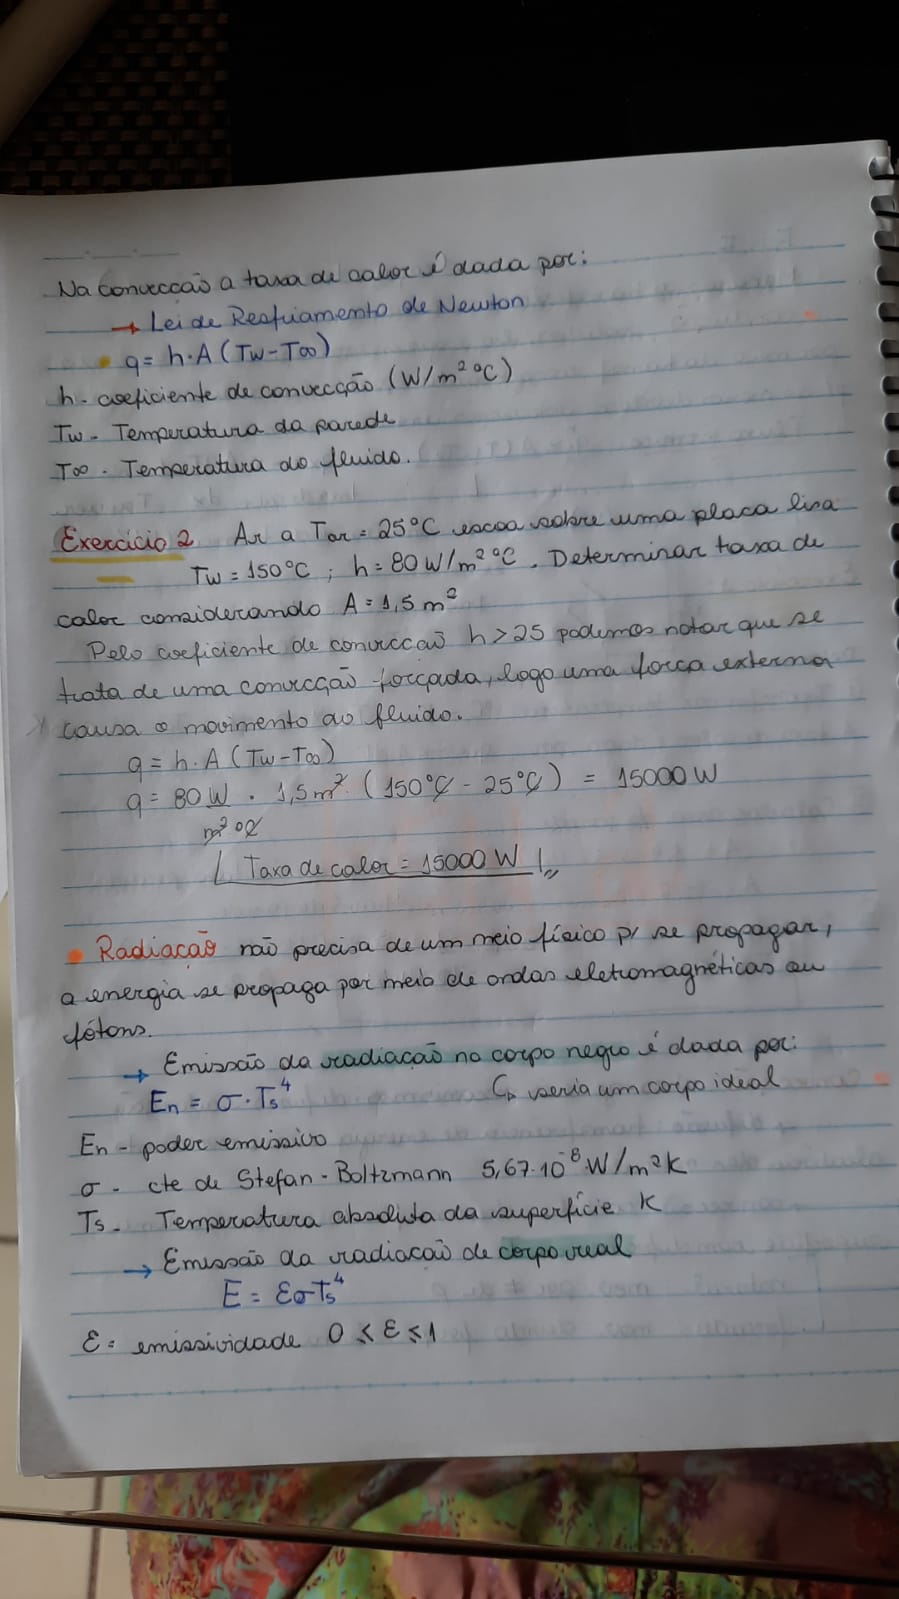 Na convecção a taxa de calor é dada por:
→ Lei de Resfriamento de Newton
• q = h·A (Tw-T∞)
h - coeficiente de convecção (W/m² °C)
Tw - Temperatura da parede
T∞ - Temperatura do fluido.
Exercício 2 Ar a Tar = 25°C escoa sobre uma placa lisa
Tw = 150°C ; h = 80 W/m² °C. Determinar taxa de
calor considerando A = 1,5 m²
Pelo coeficiente de convecção h > 25 podemos notar que se
trata de uma convecção forçada, logo uma força externa
causa o movimento do fluido.
q = h·A (Tw-T∞)
q = 80 W · 1,5 m² · (150°C - 25°C) = 15000 W
m² °C
Taxa de calor = 15000 W
• Radiação não precisa de um meio físico p/ se propagar,
a energia se propaga por meio de ondas eletromagnéticas ou
fótons.
→ Emissão da radiação no corpo negro é dada por:
En = σ·Ts⁴ ↳ seria um corpo ideal
En - poder emissivo
σ - cte de Stefan-Boltzmann 5,67·10⁻⁸ W/m²K
Ts - Temperatura absoluta da superfície K
→ Emissão da radiação de corpo real
E = εσTs⁴
ε = emissividade 0 ≤ ε ≤ 1